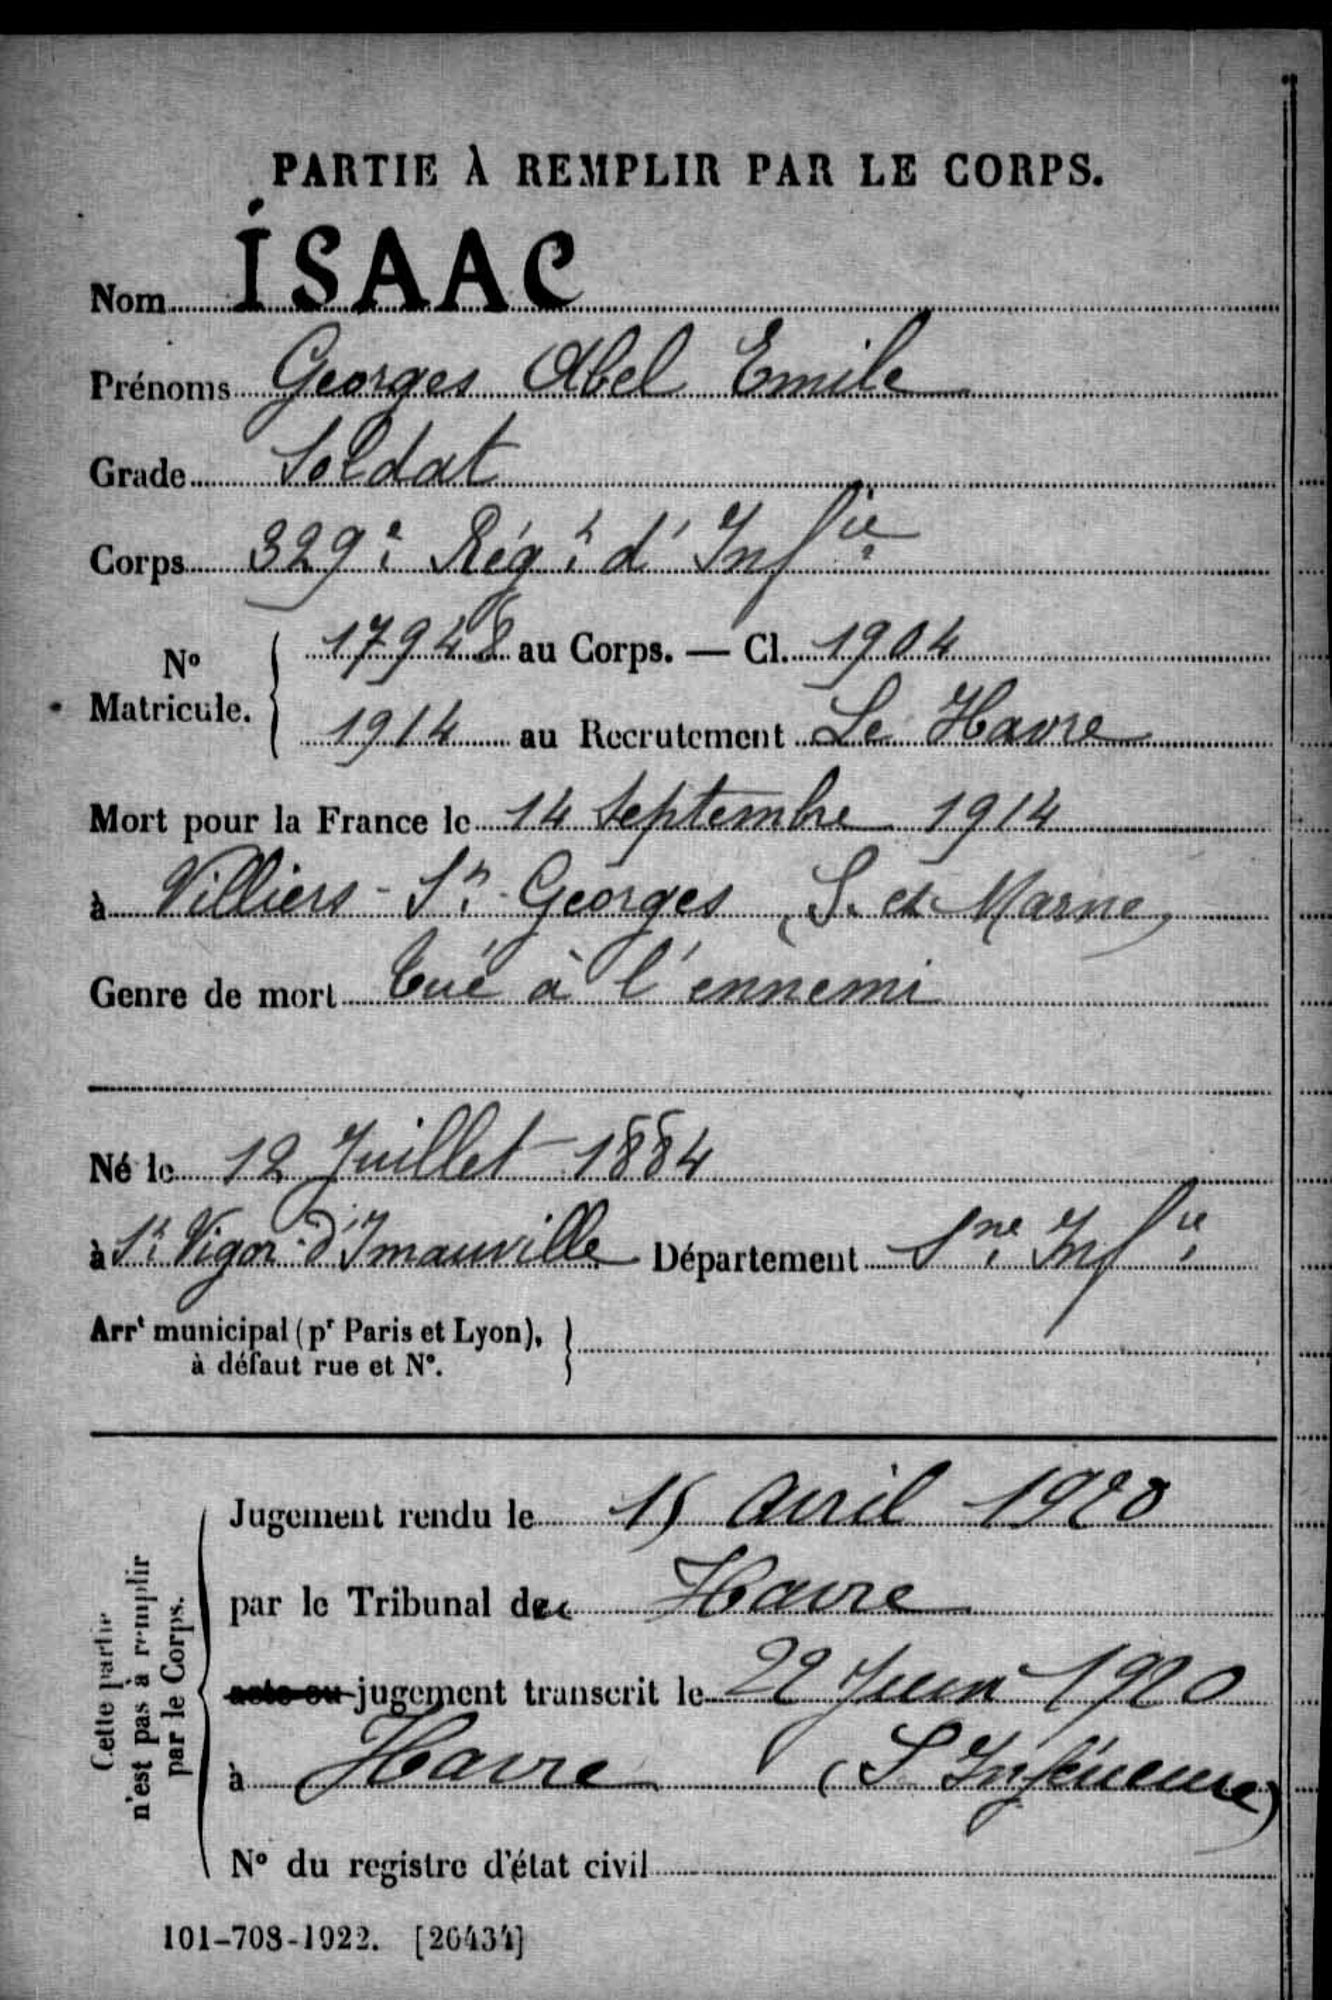 PARTIE À REMPLIR PAR LE CORPS.
Nom ISAAC
Prénoms Georges Abel Emile
Grade Soldat
Corps 329e Régt d'Infie
No Matricule. 17948 au Corps. — Cl. 1904
1914 au Recrutement Le Havre
Mort pour la France le 14 Septembre 1914
à Villiers-St-Georges (S. et Marne)
Genre de mort tué à l'ennemi
Né le 12 Juillet 1884
à St Vigor d'Imauville Département Sne Infie
Arrt municipal (pr Paris et Lyon),
à défaut rue et No.
Cette partie
n'est pas à remplir
par le Corps.
Jugement rendu le 15 Avril 1920
par le Tribunal du Havre
acte ou jugement transcrit le 22 Juin 1920
à Havre (S Inférieure)
No du registre d'état civil
101-708-1922. [26434]